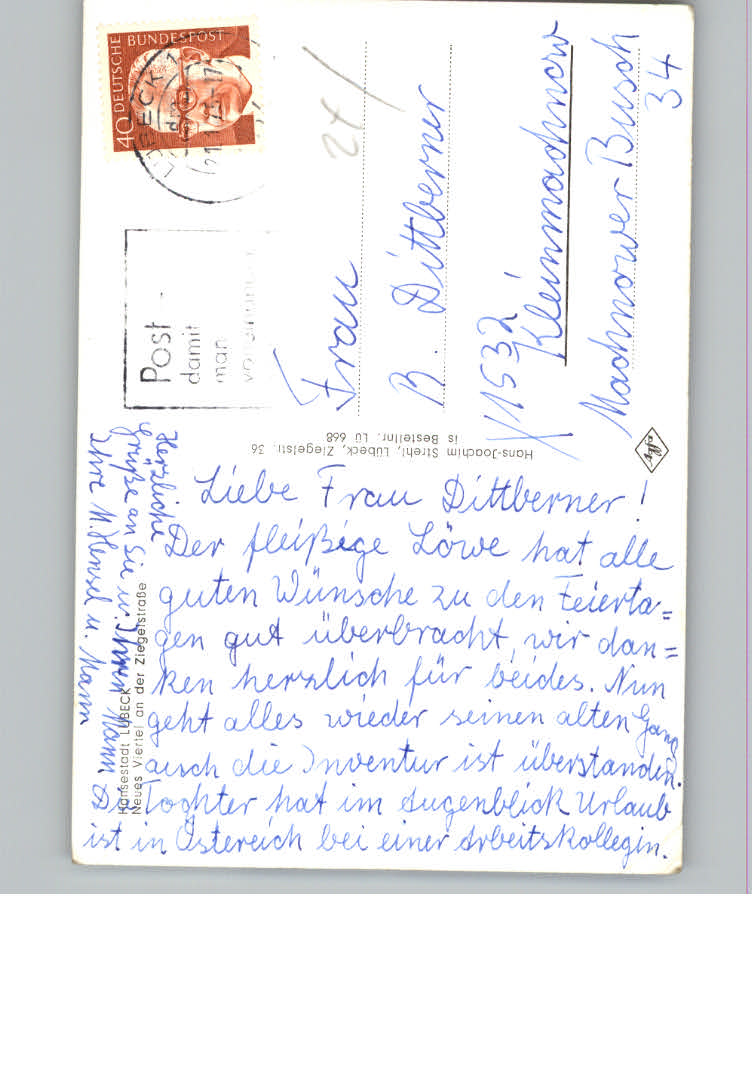 Liebe Frau Dittberner!
Der fleißige Löwe hat alle
guten Wünsche zu den Feierta=
gen gut überbracht, wir dan=
ken herzlich für beides. Nun
geht alles wieder seinen alten Gang
auch die Inventur ist überstanden.
Die Tochter hat im Augenblick Urlaub
ist in Östereich bei einer Arbeitskollegin.
Herzliche
Grüße an Sie u. Ihren Mann
Ihre M. Hensel u. Mann
Hansestadt LÜBECK
Neues Viertel an der Ziegelstraße
Hans-Joachim Strehl, Lübeck, Ziegelstr. 36
is Bestellnr. Lü 668
DEUTSCHE BUNDESPOST
40
LÜBECK 1
Post
damit
man
2f/
Frau
B. Dittberner
X1532
Kleinmachnow
Machnower Busch
34